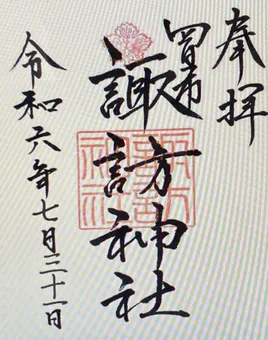 奉拝
諏訪神社
令和六年七月三十一日